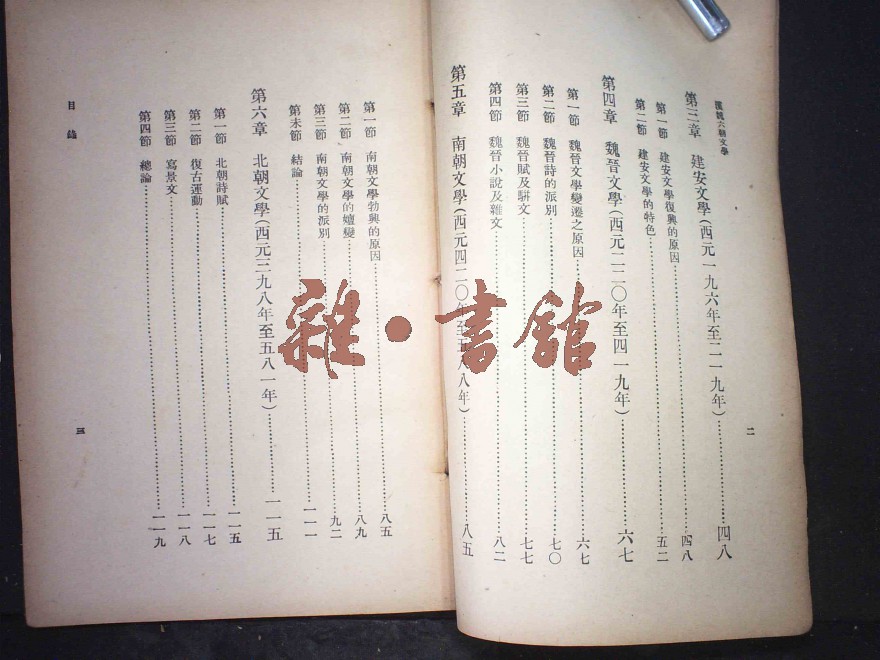 漢魏六朝文學
第三章 建安文學(西元一九六年至二一九年)……四八
第一節 建安文學復興的原因……四八
第二節 建安文學的特色……五二
第四章 魏晉文學(西元二二〇年至四一九年)……六七
第一節 魏晉文學變遷之原因……六七
第二節 魏晉詩的派別……七〇
第三節 魏晉賦及駢文……七七
第四節 魏晉小說及雜文……八二
第五章 南朝文學(西元四二〇年至五八八年)……八五
二
第一節 南朝文學勃興的原因……八五
第二節 南朝文學的嬗變……八九
第三節 南朝文學的派別……九二
第末節 結論……一一一
第六章 北朝文學(西元三九八年至五八一年)……一一五
第一節 北朝詩賦……一一五
第二節 復古運動……一一七
第三節 寫景文……一一八
第四節 總論……一一九
目錄
三
雜·書館